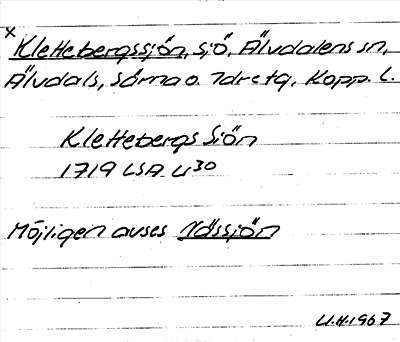 x
Klettebergssjön, sjö, Älvdalens sn,
Älvdals, Särna o. Idre tg, Kopp. l.
Klettebergs Siön
1719 LSA U30
Möjligen avses Nässjön
U.H. 1967